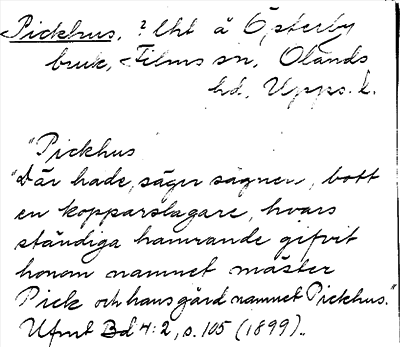 Pickhus, ? lht å Österby
bruk, Films sn, Olands
hd, Upps. l.
"Pickhus
"Där hade, säger sägnen, bott
en kopparslagare, hvars
ständiga hamrande gifvit
honom namnet mäster
Pick och hans gård namnet Pickhus."
Ufmt Bd 4:2, s. 105 (1899).